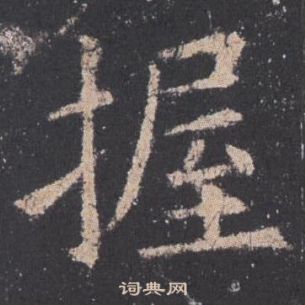 握
词典网